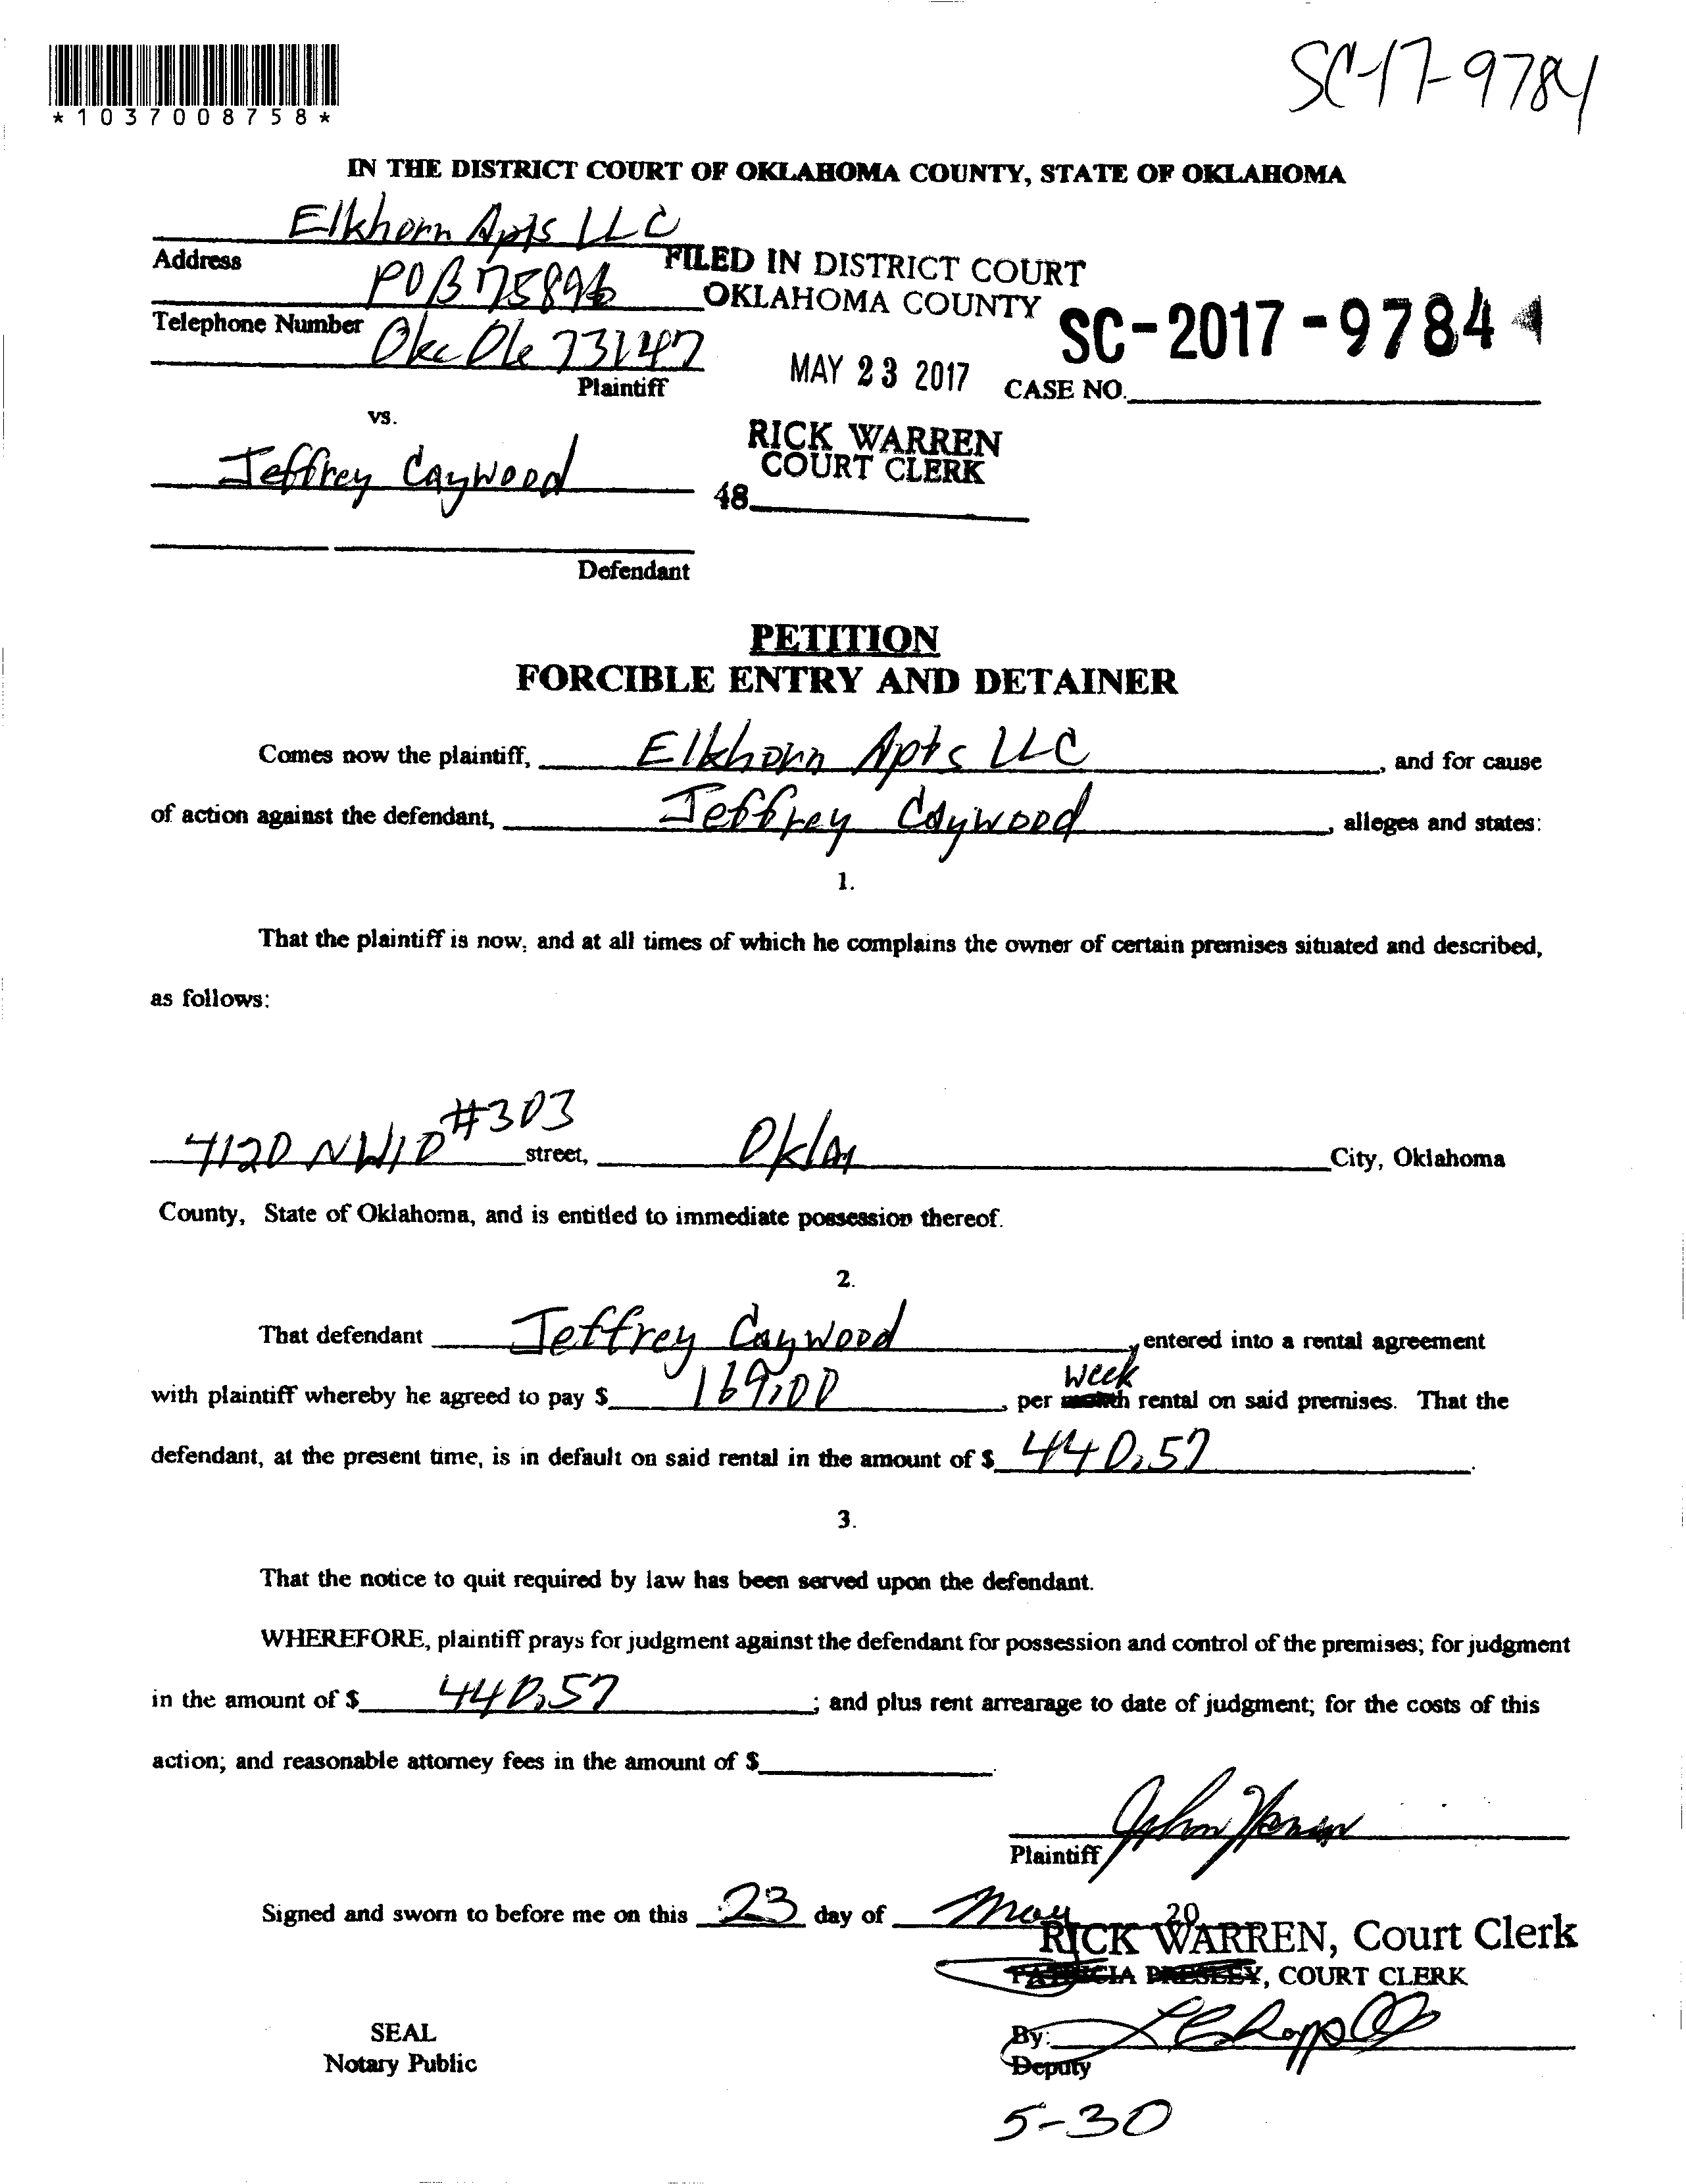 *1037008758*
SC-17-9784
IN THE DISTRICT COURT OF OKLAHOMA COUNTY, STATE OF OKLAHOMA
Elkhorn Apts LLC
Address
POB 75896
FILED IN DISTRICT COURT
OKLAHOMA COUNTY
SC-2017-9784
Telephone Number
Okc Ok 73147
Plaintiff
MAY 23 2017
CASE NO.
vs.
Jeffrey Caywood
RICK WARREN
COURT CLERK
48
Defendant
PETITION
FORCIBLE ENTRY AND DETAINER
Comes now the plaintiff, Elkhorn Apts LLC, and for cause
of action against the defendant, Jeffrey Caywood, alleges and states:
1.
That the plaintiff is now, and at all times of which he complains the owner of certain premises situated and described,
as follows:
4120 NW10 #303 street, Okla City, Oklahoma
County, State of Oklahoma, and is entitled to immediate possession thereof.
2.
That defendant Jeffrey Caywood, entered into a rental agreement
week
with plaintiff whereby he agreed to pay $ 169.00, per month rental on said premises. That the
defendant, at the present time, is in default on said rental in the amount of $ 440.57.
3.
That the notice to quit required by law has been served upon the defendant.
WHEREFORE, plaintiff prays for judgment against the defendant for possession and control of the premises; for judgment
in the amount of $ 440.57; and plus rent arrearage to date of judgment; for the costs of this
action; and reasonable attorney fees in the amount of $.
Plaintiff
Signed and sworn to before me on this 23 day of May 20
RICK WARREN, Court Clerk
PATRICIA PRESLEY, COURT CLERK
SEAL
By:
Notary Public
Deputy
5-30